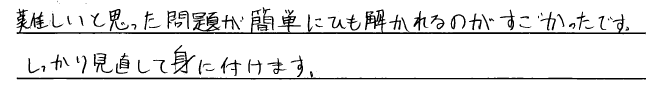 難しいと思った問題が簡単にひも解かれるのがすごかったです。
しっかり見直して身に付けます。